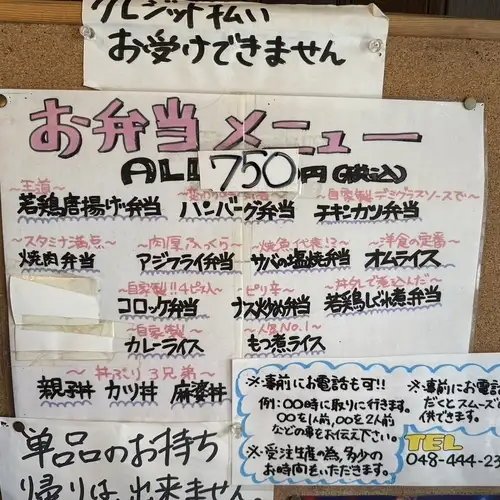 クレジット払い
お受けできません
お弁当メニュー
ALL 750円(税込)
~王道~
若鶏唐揚げ弁当
ハンバーグ弁当
~自家製デミグラスソースで~
チキンカツ弁当
~スタミナ満点~
焼肉弁当
~肉厚ふっくら~
アジフライ弁当
~焼魚代表!?~
サバの塩焼弁当
~洋食の定番~
オムライス
~自家製!!4ピース入~
コロッケ弁当
~ピリ辛~
ナス炒め弁当
若鶏しぐれ煮弁当
~自家製!~
カレーライス
~人気No.1~
もつ煮ライス
~丼ぶり3兄弟~
親子丼 カツ丼 麻婆丼
※事前にお電話も可!!
例:〇〇時に取りに行きます。
〇〇を1人前、〇〇を2人前
などの事をお伝え下さい。
※受注生産の為、多少の
お時間もいただきます。
※事前にお電話
だくとスムーズ
供できます。
TEL
048-444-23
単品のお持ち
帰りは、出来ません